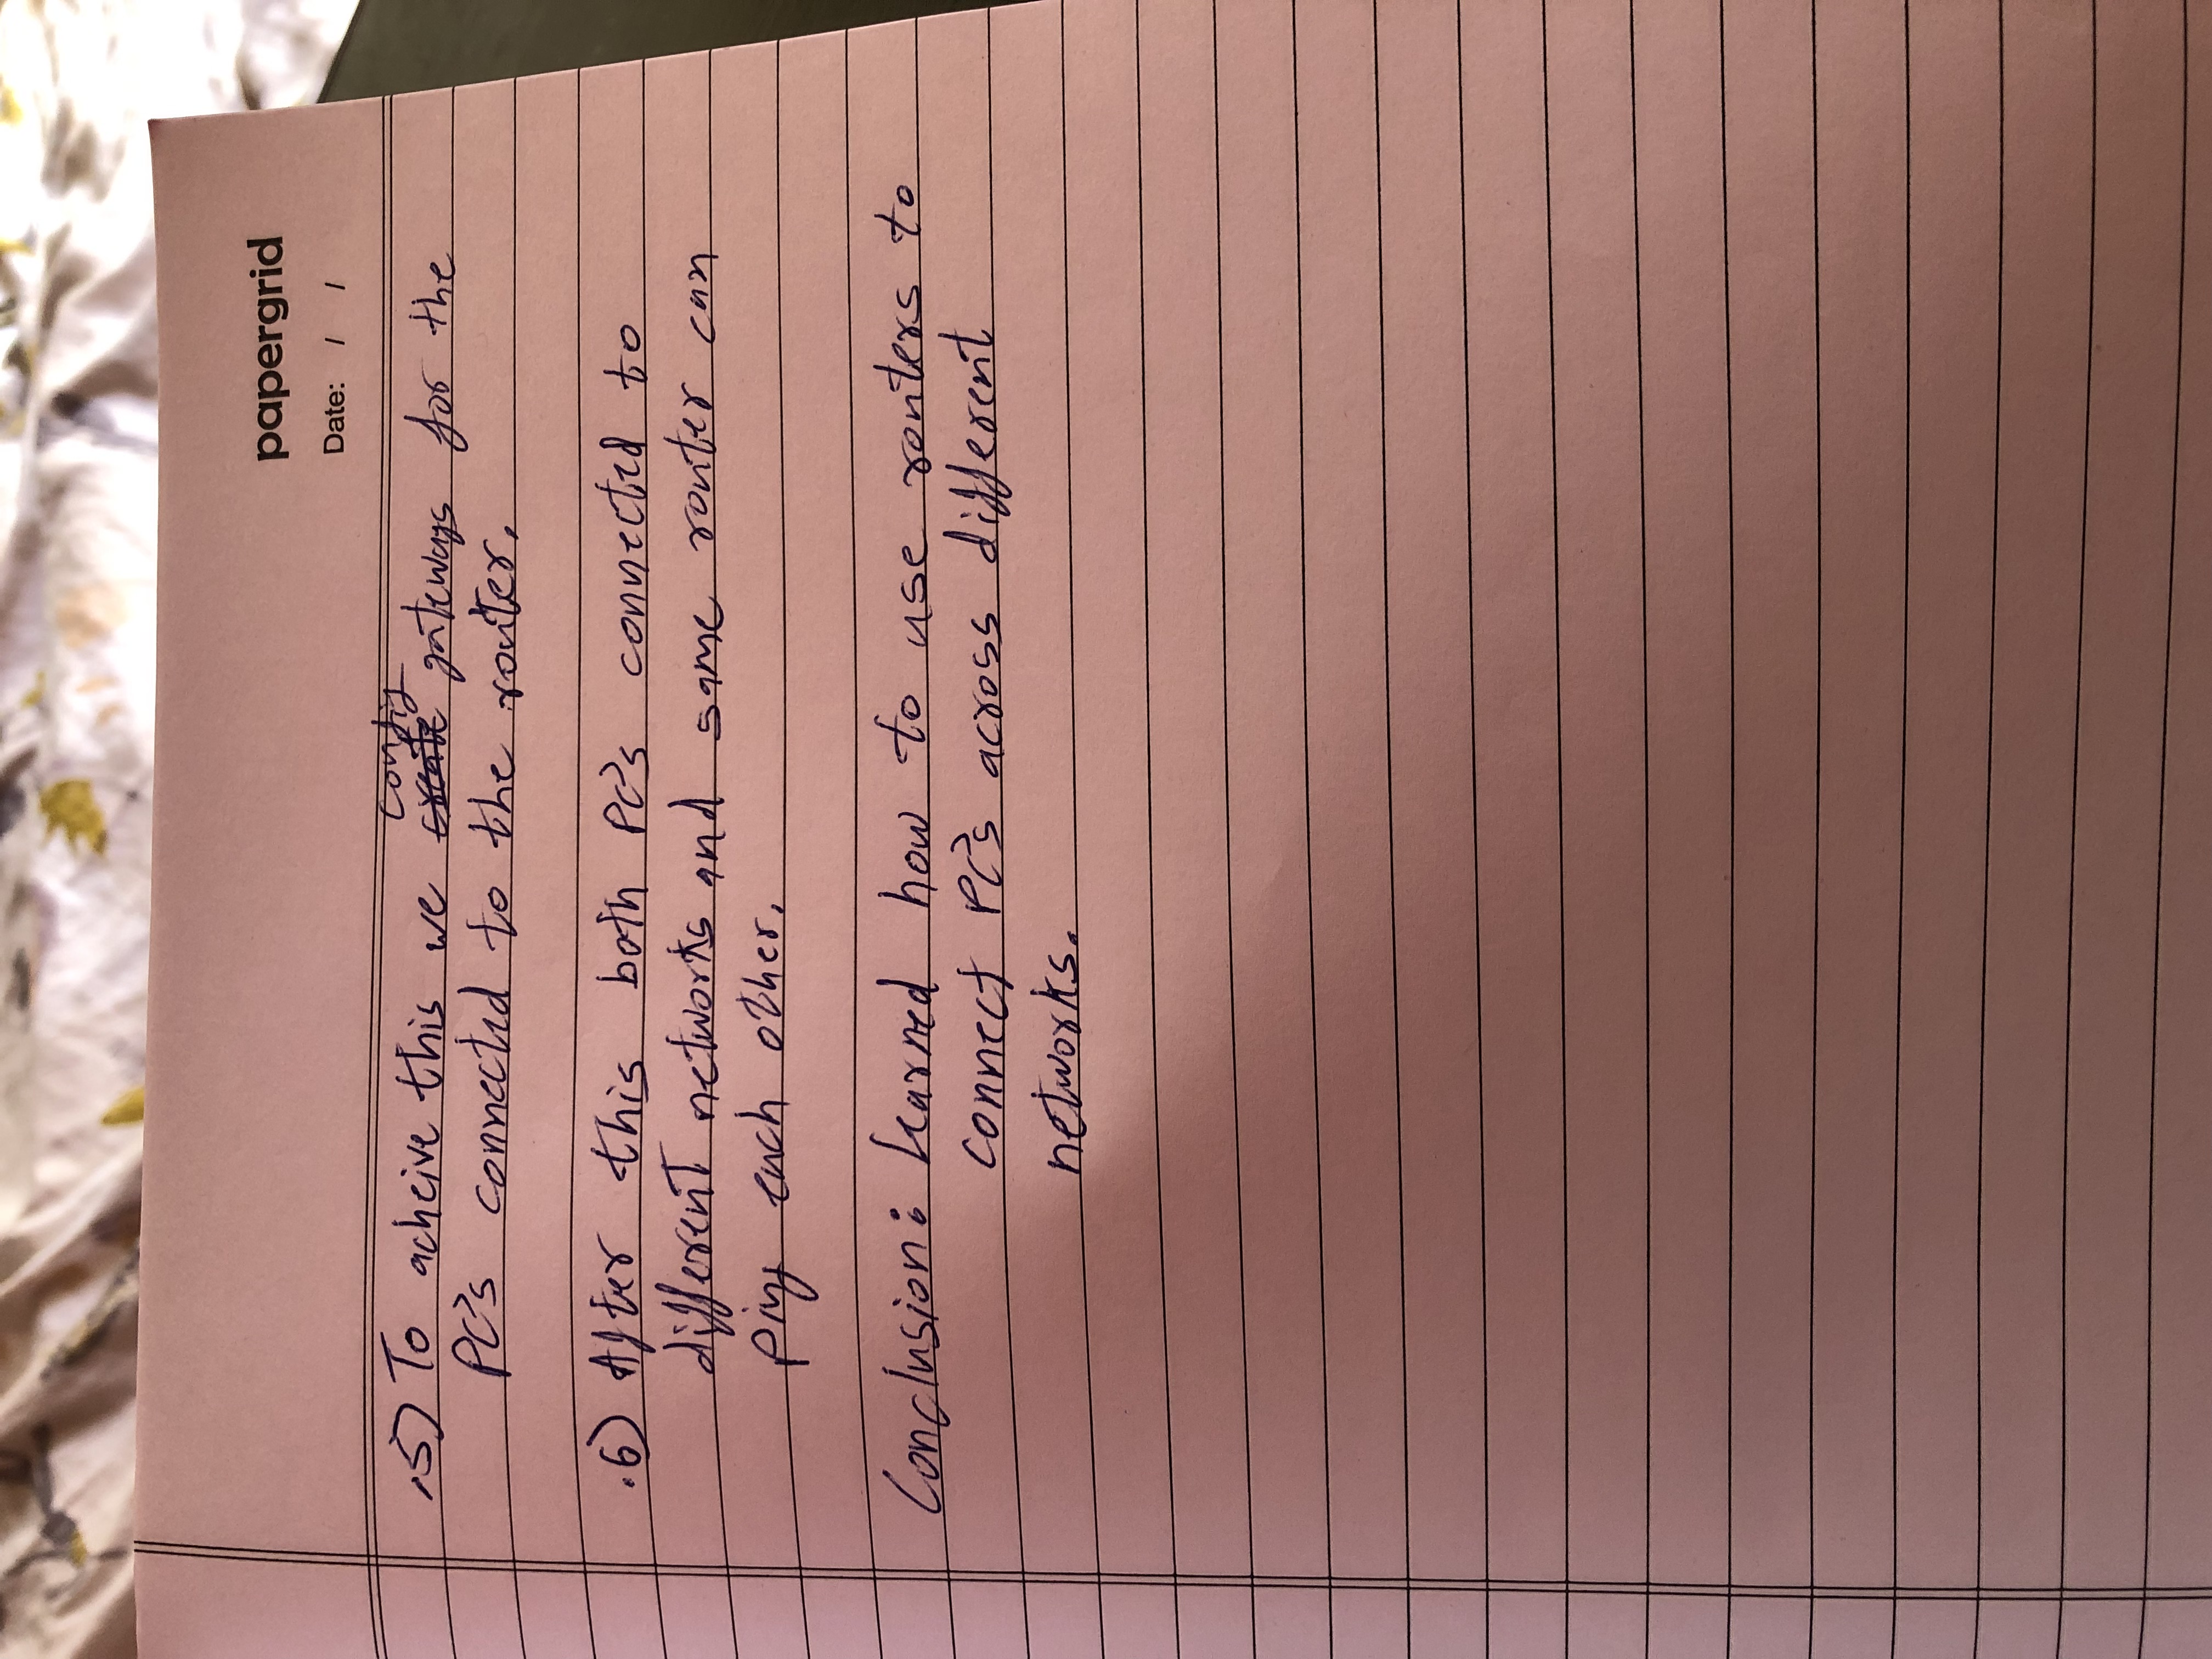 papergrid
Date: / /
config
.5) To acheive this we create gateways for the
PC's connected to the router.
.6) After this both PC's connected to
different networks and same router can
ping each other.
Conclusion: Learned how to use routers to
connect PC's across different
networks.